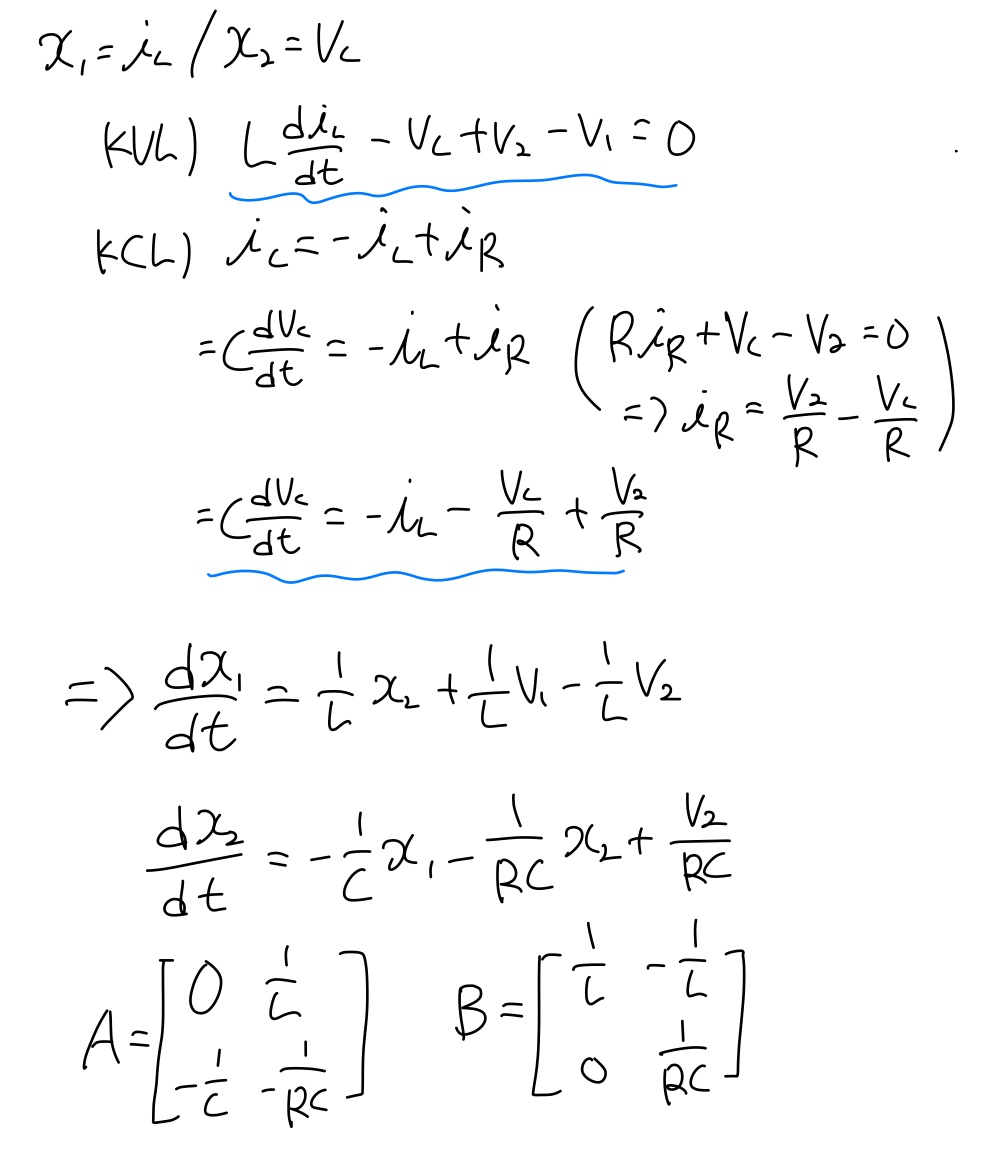 x₁ = i_L / x₂ = V_C
KVL) L di_L/dt - V_C + V₂ - V₁ = 0
KCL) i_C = -i_L + i_R
= C dV_C/dt = -i_L + i_R ( R i_R + V_C - V₂ = 0
=> i_R = V₂/R - V_C/R )
= C dV_C/dt = -i_L - V_C/R + V₂/R
=> dx₁/dt = 1/L x₂ + 1/L V₁ - 1/L V₂
dx₂/dt = -1/C x₁ - 1/RC x₂ + V₂/RC
A = [ 0 1/L B = [ 1/L -1/L
-1/C -1/RC ] 0 1/RC ]